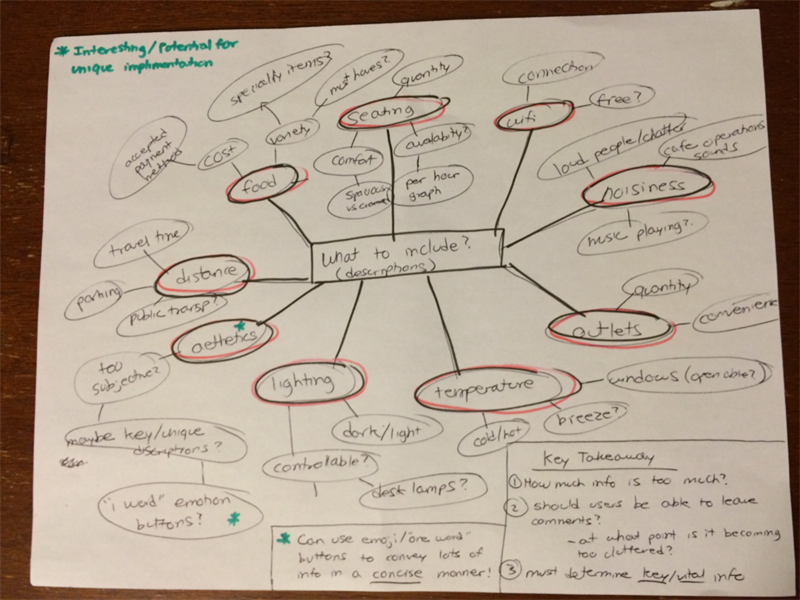 * Interesting/Potential for
unique implimentation
specialty items?
must haves?
variety
cost
accepted
payment
method
food
quantity
Seating
comfort
availability?
spacious
vs cramped
per hour
graph
connection
wifi
free?
loud people/chatter
cafe operations
sounds
noisiness
music playing?
What to include?
(descriptions)
travel time
distance
parking
public transp?
aethetics *
too
subjective?
maybe key/unique
discriptions?
"1 word" emotion
buttons? *
lighting
dark/light
controllable?
desk lamps?
temperature
windows (openable?)
breeze?
cold/hot
quantity
outlets
convenienc
* Can use emoji/"one word"
buttons to convey lots of
info in a concise manner!
Key Takeaway
① How much info is too much?
② should users be able to leave
comments?
- at what point is it becoming
too cluttered?
③ must determine key/vital info